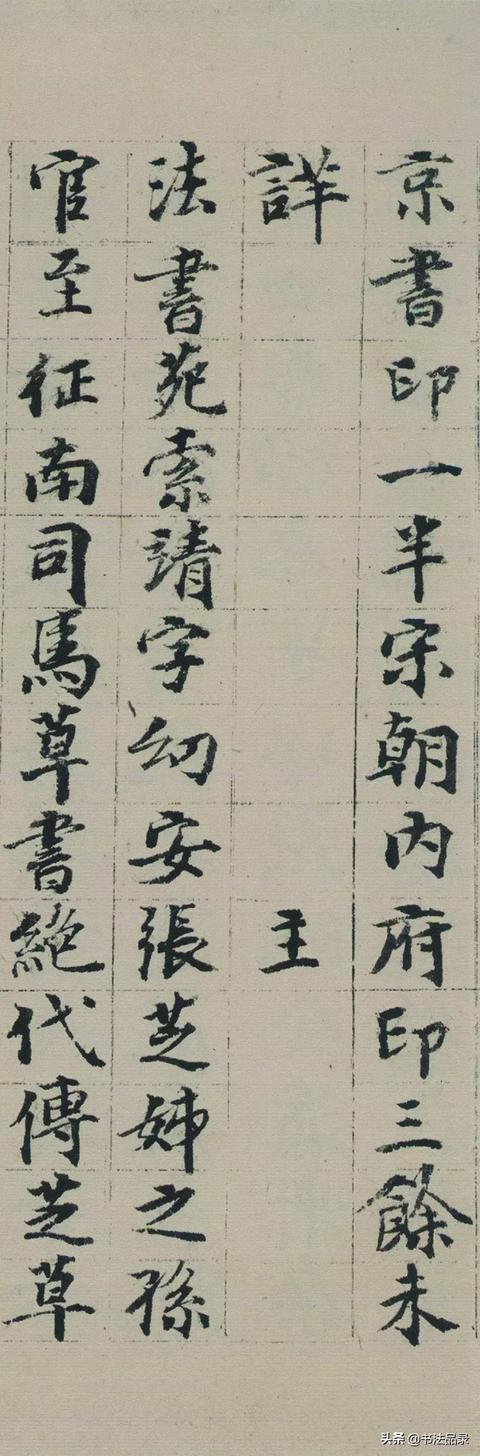 京書印一半宋朝内府印三餘未
詳 主
法書苑索靖字幼安張芝姊之孫
官至征南司馬草書絶代傳芝草
头条 @书法品录